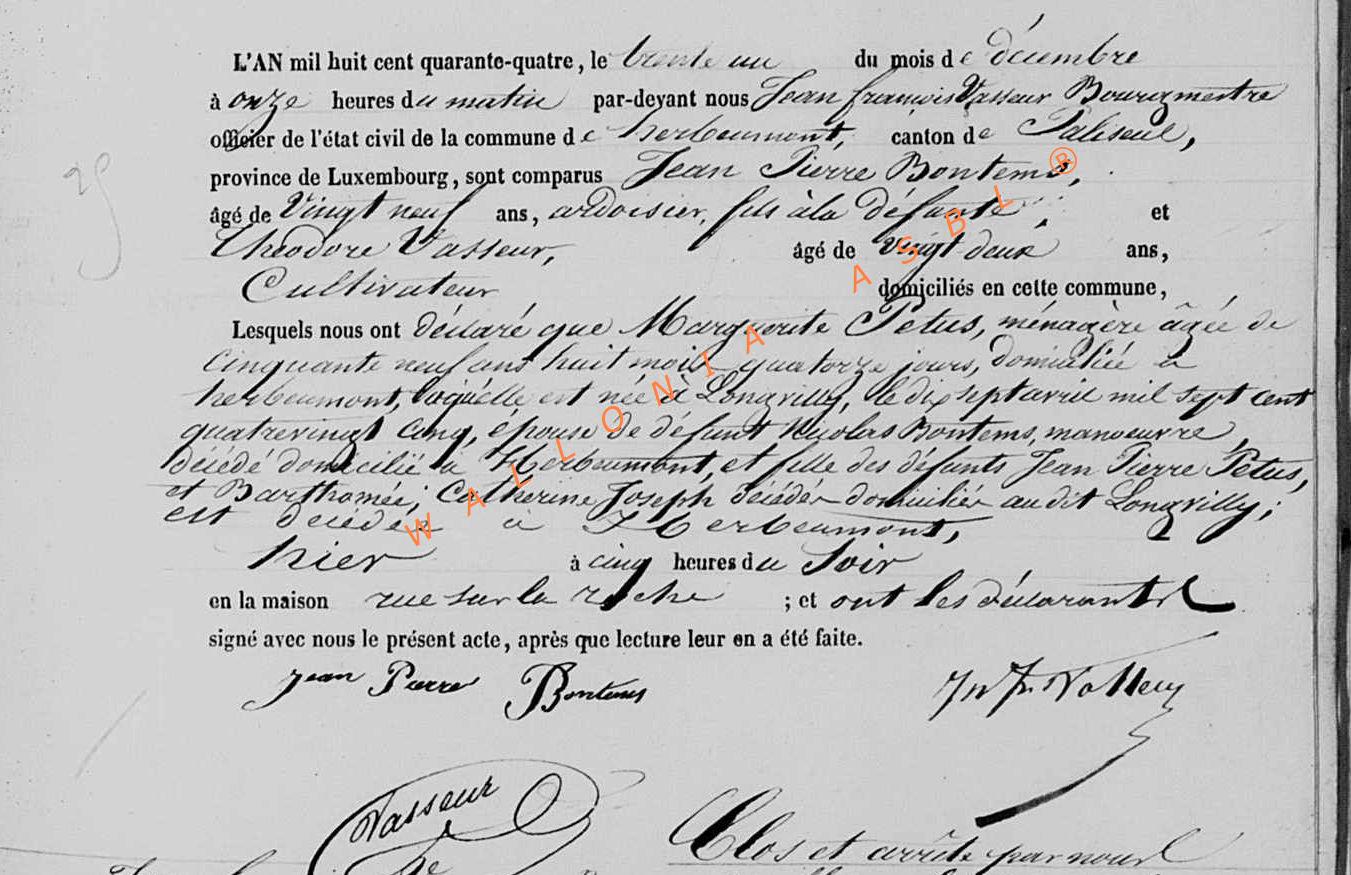 L'AN mil huit cent quarante-quatre, le trente un du mois de décembre
à onze heures du matin par-devant nous Jean françois Vasseur Bourgmestre
officier de l'état civil de la commune de herbeumont, canton de Paliseul,
province de Luxembourg, sont comparus Jean Pierre Bontems,
âgé de Vingt neuf ans, ardoisier, fils à la défunte, et
Théodore Vasseur, âgé de vingt-deux ans,
Cultivateur domiciliés en cette commune,
Lesquels nous ont déclaré que Marguerite Petus, ménagère âgée de
Cinquante neuf ans huit mois quatorze jours, domiciliée à
herbeumont, laquelle est née à Longvilly, le dix sept avril mil sept cent
quatrevingt cinq, épouse de défunt Nicolas Bontems, manoeuvre,
décédé domicilié à Herbeumont, et fille des défunts Jean Pierre Petus,
et Barthomée; Catherine Joseph décédés domiciliés audit Longvilly;
est décédée à Herbeumont,
hier à cinq heures du soir
en la maison rue sur la roche ; et ont les déclarants
signé avec nous le présent acte, après que lecture leur en a été faite.
Jean Pierre Bontems Jn Fr Vasseur
Vasseur
Clos et arrêté par nous
WALLONIA ASBL ®